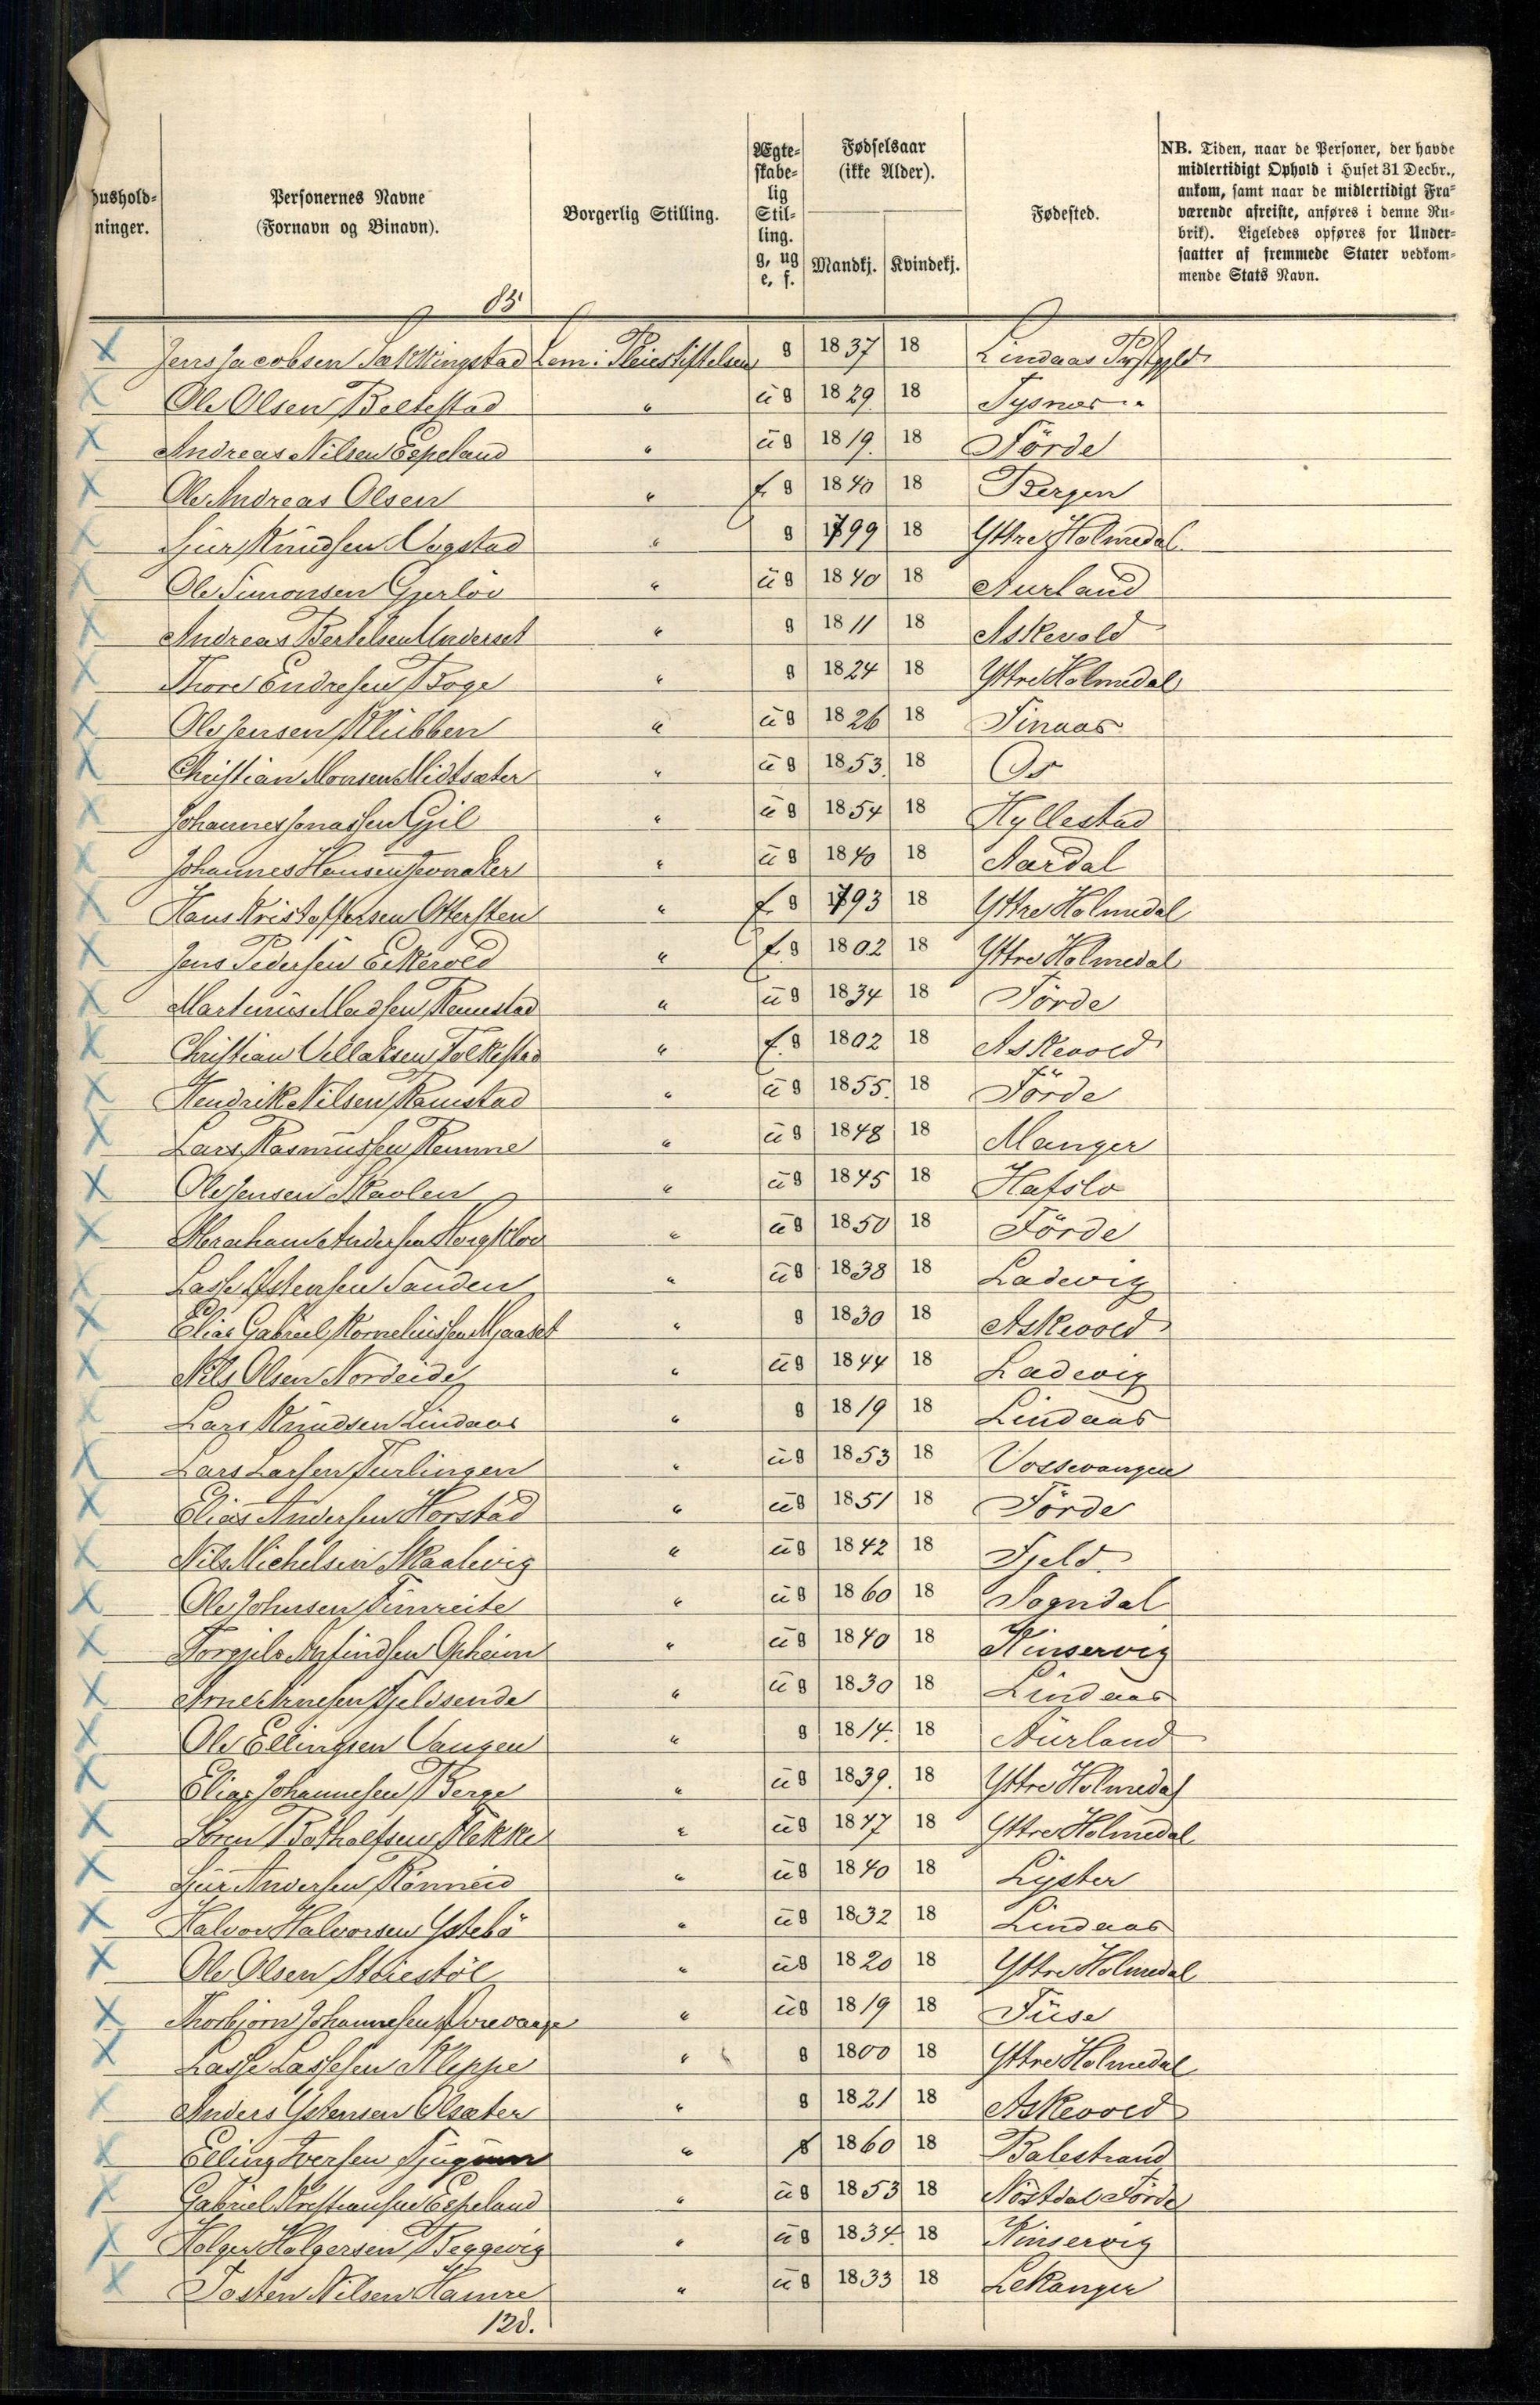 hushold-
ninger.
Personernes Navne
(Fornavn og Binavn).
Borgerlig Stilling.
Ægte-
skabe-
lig
Stil-
ling.
g, ug
e, f.
Fødselsaar
(ikke Alder).
Mandkj. Kvindekj.
Fødested.
NB. Tiden, naar de Personer, der havde
midlertidigt Ophold i Huset 31 Decbr.,
ankom, samt naar de midlertidigt Fra-
værende afreiste, anføres i denne Ru-
brik). Ligeledes opføres for Under-
saatter af fremmede Stater vedkom-
mende Stats Navn.
85
X Jens Jacobsen Sækkingstad Lem i Pleiestiftelsen g 1837 18 Lindaas Prstgjld
X Ole Olsen Beltestad " ug 1829. 18 Tysnæs "
X Andreas Nilsen Espeland " ug 1819. 18 Förde
X Ole Andreas Olsen " f. g 1840 18 Bergen
X Sjur Knudsen Vogstad " g 1799 18 Yttre Holmedal
X Ole Simonsen Gjerlöv " ug 1840 18 Aurland
X Andreas Bertelsen Underset " g 1811 18 Askevold
X Thore Endresen Boge " g 1824 18 Yttre Holmedal
X Ole Jensen Klubben " ug 1826 18 Finaas
X Christian Monsen Midtsæter " ug 1853. 18 Os
X Johannes Jonassen Gjil " ug 1854 18 Hyllestad
X Johannes Hansen " ug 1840 18 Aardal
X Hans Kristoffersen Ottersten " f. g 1793 18 Yttre Holmedal
X Jens Pedersen Eikevold " f. g 1802 18 Yttre Holmedal
X Martinus Madsen Ramstad " ug 1834 18 Förde
X Christian Vellaksen Folkestad " f. g 1802 18 Askevold
X Hendrik Nilsen Ramstad " ug 1855. 18 Förde
X Lars Rasmussen Remme " ug 1848 18 Manger
X Ole Jensen Skaolen " ug 1845 18 Hafslo
X Abraham Andersen " ug 1850 18 Förde
X Lasse Østensen Sanden " ug 1838 18 Ladevig
X Elias Gabriel Korneliussen Mjaaset " g 1830 18 Askevold
X Nils Olsen Nordeide " ug 1844 18 Ladevig
X Lars Knudsen Lindaas " g 1819 18 Lindaas
X Lars Larsen Furlingen " ug 1853 18 Vossevangen
X Elias Andersen Horstad " ug 1851 18 Förde
X Nils Michelsen Skaalevig " ug 1842 18 Fjeld
X Ole Johnsen Fimreite " ug 1860 18 Sogndal
X Torgjils Arfindsen Opheim " ug 1840 18 Kinservig
X Arne Arnesen Fjeldsende " ug 1830 18 Lindaas
X Ole Ellingsen Vangen " g 1814. 18 Aurland
X Elias Johannesen Berge " ug 1839. 18 Yttre Holmedal
X Sören Botholfsen Flekke " ug 1847 18 Yttre Holmedal
X Sjur Andersen Rönneid " ug 1840 18 Lyster
X Halvor Halvorsen Ystebö " ug 1832 18 Lindaas
X Ole Olsen Stöiestöl " ug 1820 18 Yttre Holmedal
X Thorbjörn Johannesen " ug 1819 18 Fuse
X Lasse Lassesen Kleppe " g 1800 18 Yttre Holmedal
X Anders Ystensen Olsæter " g 1821 18 Askevold
X Elling Iversen Tjugum " g 1860 18 Balestrand
X Gabriel Kristiansen Espeland " ug 1853 18 Nöstdal Förde
X Holger Holgersen Beggevig " ug 1834. 18 Kinservig
X Tosten Nilsen Hamre " ug 1833 18 Lekanger
128.